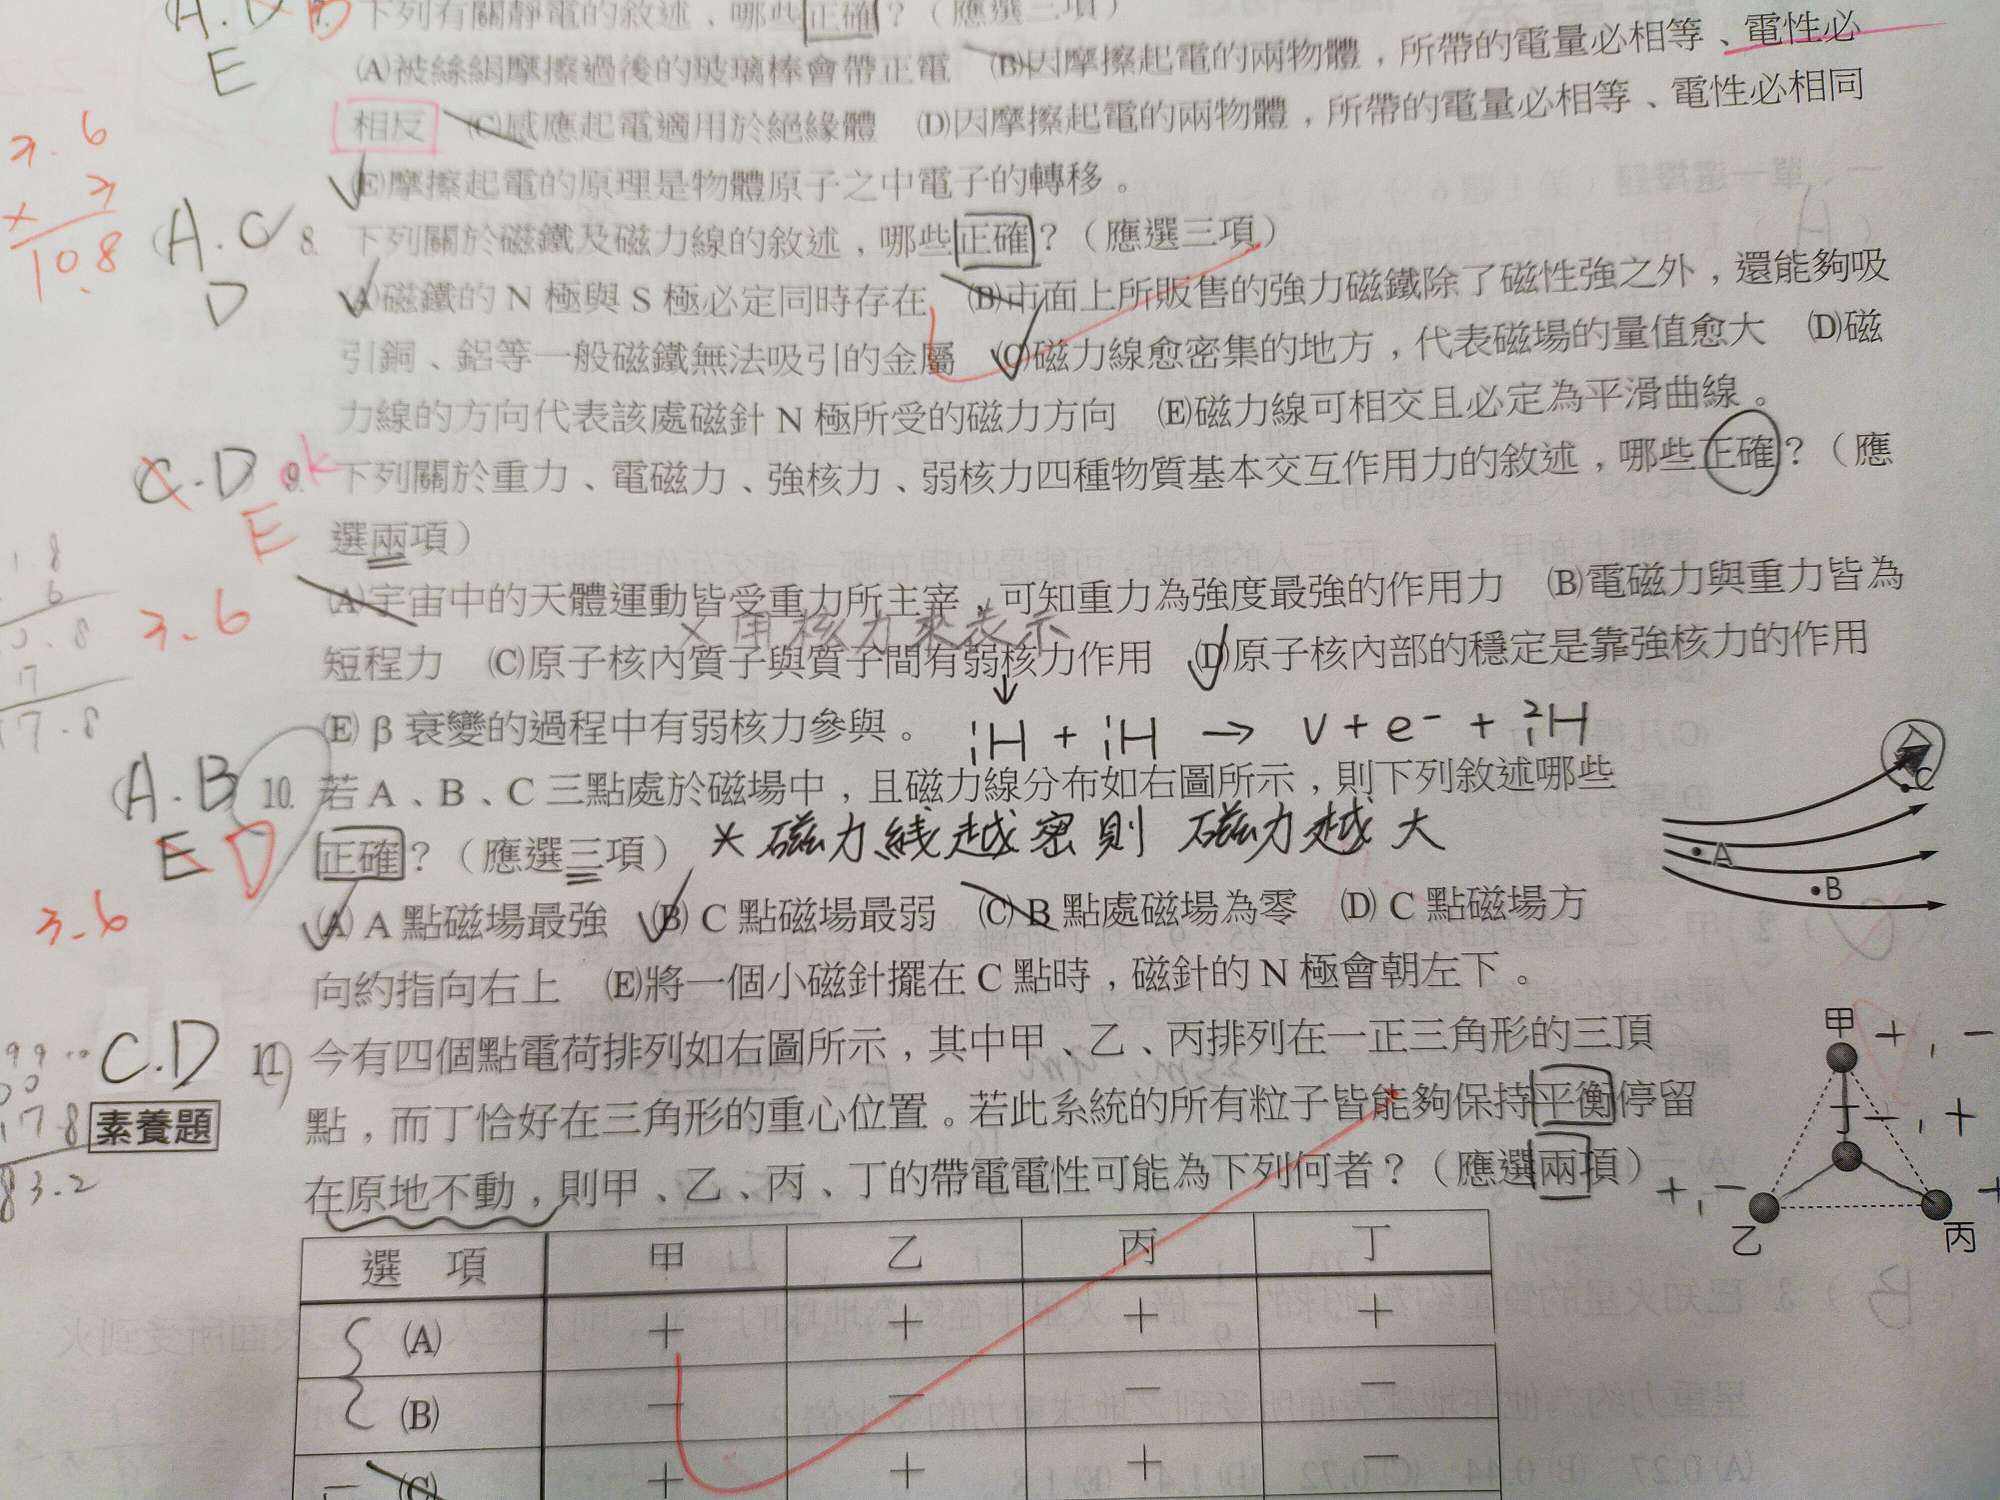 下列有關靜電的敘述，哪些正確？（應選三項）
(A)被絲絹摩擦過後的玻璃棒會帶正電　(B)因摩擦起電的兩物體，所帶的電量必相等、電性必
E
相反　(C)感應起電適用於絕緣體　(D)因摩擦起電的兩物體，所帶的電量必相等、電性必相同
3.6
(E)摩擦起電的原理是物體原子之中電子的轉移。
× 3
10.8
A.C 8. 下列關於磁鐵及磁力線的敘述，哪些正確？（應選三項）
D
(A)磁鐵的 N 極與 S 極必定同時存在　(B)市面上所販售的強力磁鐵除了磁性強之外，還能夠吸
引銅、鋁等一般磁鐵無法吸引的金屬　(C)磁力線愈密集的地方，代表磁場的量值愈大　(D)磁
力線的方向代表該處磁針 N 極所受的磁力方向　(E)磁力線可相交且必定為平滑曲線。
C.D ok 9. 下列關於重力、電磁力、強核力、弱核力四種物質基本交互作用力的敘述，哪些正確？（應
E
選兩項）
3.6
(A)宇宙中的天體運動皆受重力所主宰，可知重力為強度最強的作用力　(B)電磁力與重力皆為
短程力　(C)原子核內質子與質子間有弱核力作用　(D)原子核內部的穩定是靠強核力的作用
(E) β 衰變的過程中有弱核力參與。
¹₁H + ¹₁H → ν + e⁻ + ²₁H
A.B 10. 若 A、B、C 三點處於磁場中，且磁力線分布如右圖所示，則下列敘述哪些
E D
正確？（應選三項）
* 磁力綫越密則 磁力越大
3.6
(A) A 點磁場最強　(B) C 點磁場最弱　(C) B 點處磁場為零　(D) C 點磁場方
向約指向右上　(E)將一個小磁針擺在 C 點時，磁針的 N 極會朝左下。
C
A
B
C.D 11. 今有四個點電荷排列如右圖所示，其中甲、乙、丙排列在一正三角形的三頂
素養題
點，而丁恰好在三角形的重心位置。若此系統的所有粒子皆能夠保持平衡停留
在原地不動，則甲、乙、丙、丁的帶電電性可能為下列何者？（應選兩項）
83.2
甲 +，－
丁 －，+
+，－
乙
丙
+
選　項　甲　乙　丙　丁
(A)　＋　＋　＋　＋
(B)　－　－　－　－
(C)　＋　＋　＋　－